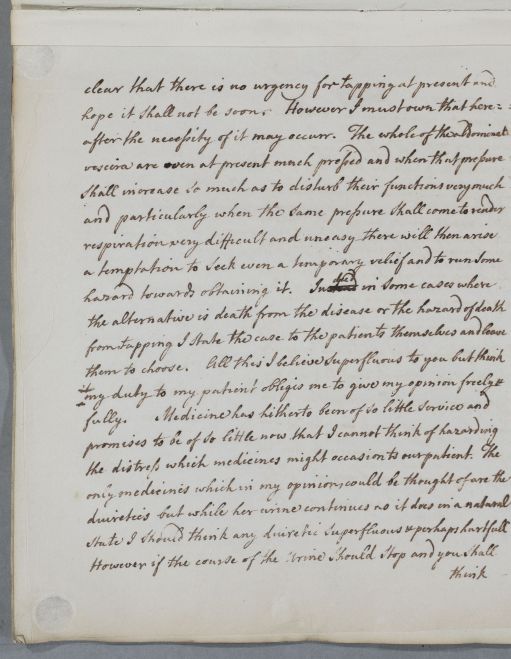 clear that there is no urgency for tapping at present and
hope it shall not be soon. However I must own that here=
after the necessity of it may occurr. The whole of the abdominal
viscera are even at present much pressed and when that pressure
shall increase so much as to disturb their functions very much
and particularly when the same pressure shall come to render
respiration very difficult and uneasy there will then arise
a temptation to seek even a temporary relief and to run some
hazard towards obtaining it. Indeed in some cases where
the alternative is death from the disease or the hazard of death
from tapping I state the case to the patients themselves and leave
them to choose. All this I believe superfluous to you but think
it my duty to my patient obliges me to give my opinion freely &
fully. Medicine has hitherto been of so little service and
promises to be of so little now that I cannot think of hazarding
the distress which medicines might occasion to our patient. The
only medicines which in my opinion could be thought of are the
diuretics but while her urine continues as it does in a natural
state I should think any diuretic superfluous & perhaps hurtfull
However if the course of the Urine should stop and you shall
think